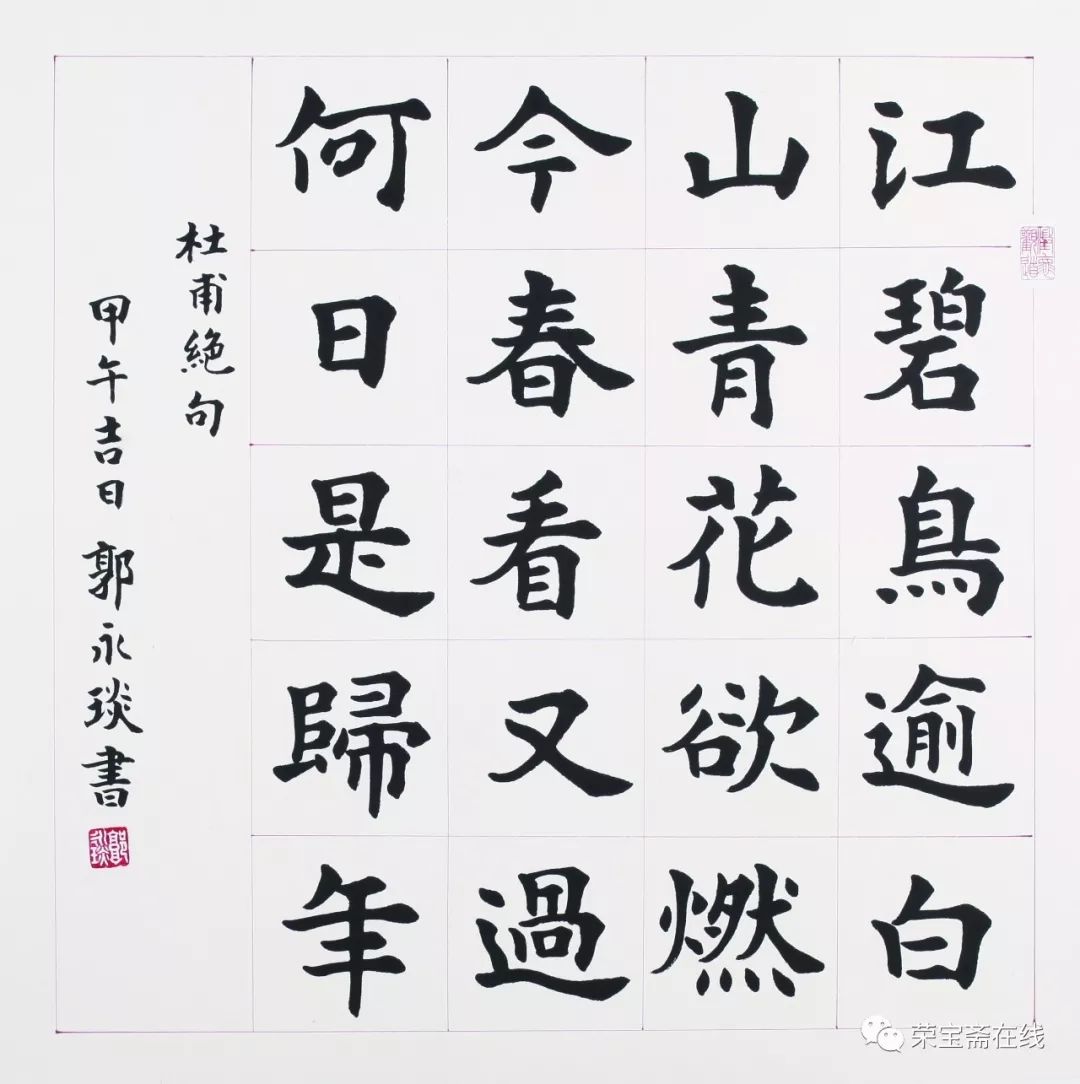 江碧鳥逾白
山青花欲燃
今春看又過
何日是歸年
杜甫絶句
甲午吉日 郭永琰書
郭永琰
荣宝斋在线